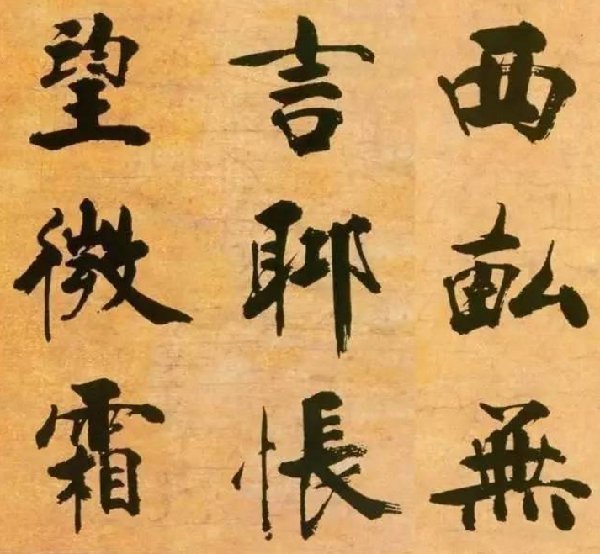 西畝無
吉聊悵
望微霜